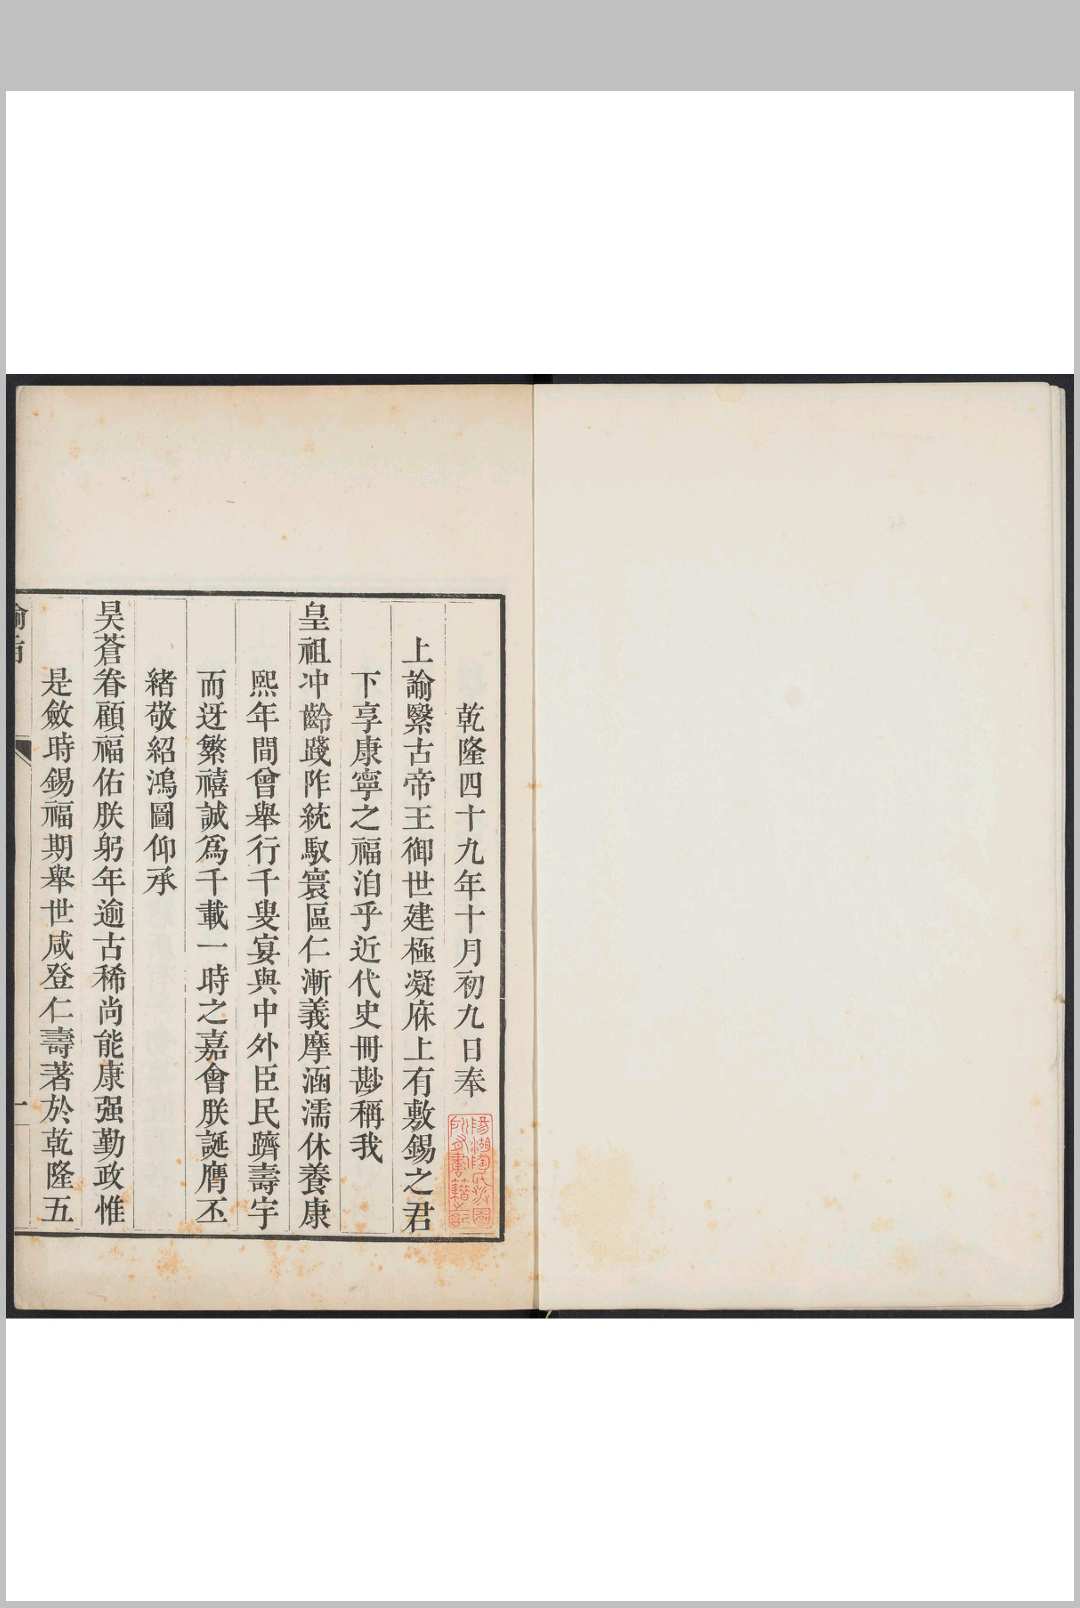 乾隆四十九年十月初九日奉
上諭緊古帝王御世建極凝庥上有敷錫之君
下享康寧之福洎乎近代史冊尠稱我
皇祖冲齡踐阼統馭寰區仁漸義摩涵濡休養康
熙年間曾舉行千叟宴與中外臣民躋壽宇
而迓繁禧誠爲千載一時之嘉會朕誕膺丕
緒敬紹鴻圖仰承
昊蒼眷顧福佑朕躬年逾古稀尚能康强勤政惟
是斂時錫福期舉世咸登仁壽著於乾隆五
陽湖陶氏涉園
所有書籍之記